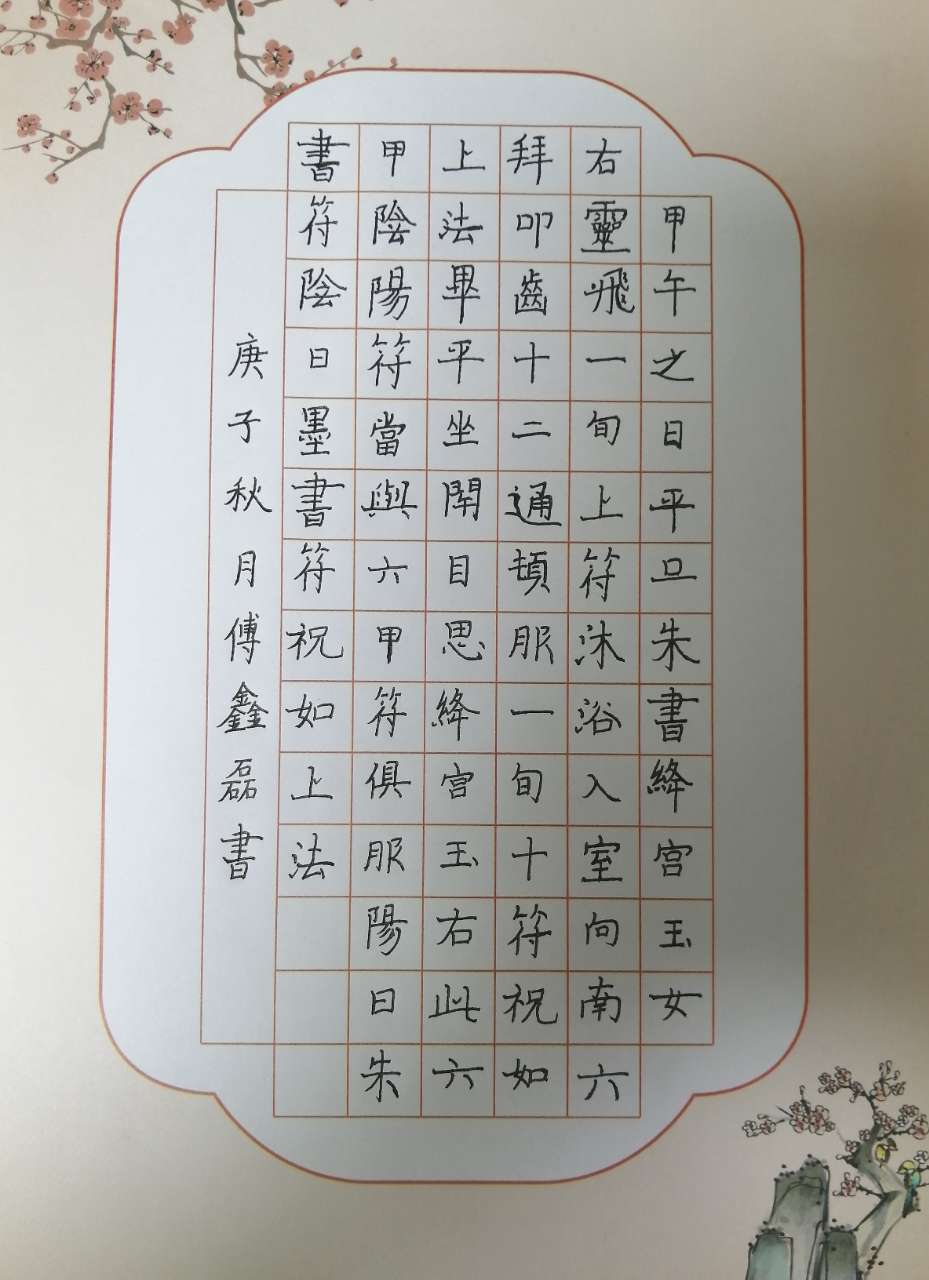 甲午之日平旦朱書絳宮玉女
右靈飛一旬上符沐浴入室向南六
拜叩齒十二通頓服一旬十符祝如
上法畢平坐閉目思絳宮玉右此六
甲陰陽符當與六甲符俱服陽日朱
書符陰日墨書符祝如上法
庚子秋月傅鑫磊書